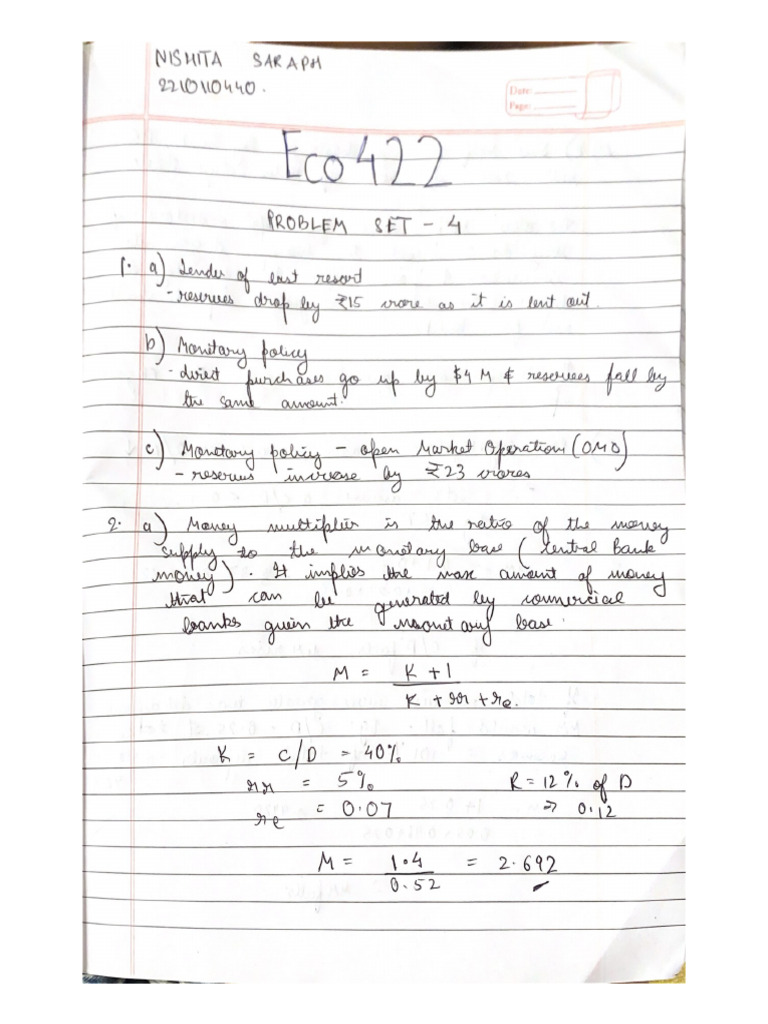 NISHITA SARAPH
2210110440.
Date:
Page:
Eco422
PROBLEM SET - 4
1. a) Lender of last resort
- reserves drop by ₹15 crore as it is lent out.
b) Monetary policy
- direct purchases go up by $4 M & reserves fall by
the same amount.
c) Monetary policy - open Market Operation (OMO)
- reserves increase by ₹23 crores
2. a) Money multiplier is the ratio of the money
supply to the monetary base (Central Bank
money). It implies the max amount of money
that can be generated by commercial
banks given the monetary base.
M = K + 1
K + rr + re.
K = C/D = 40%
rr = 5% R = 12% of D
re = 0.07 ⇒ 0.12
M = 1.4 = 2.692
0.52